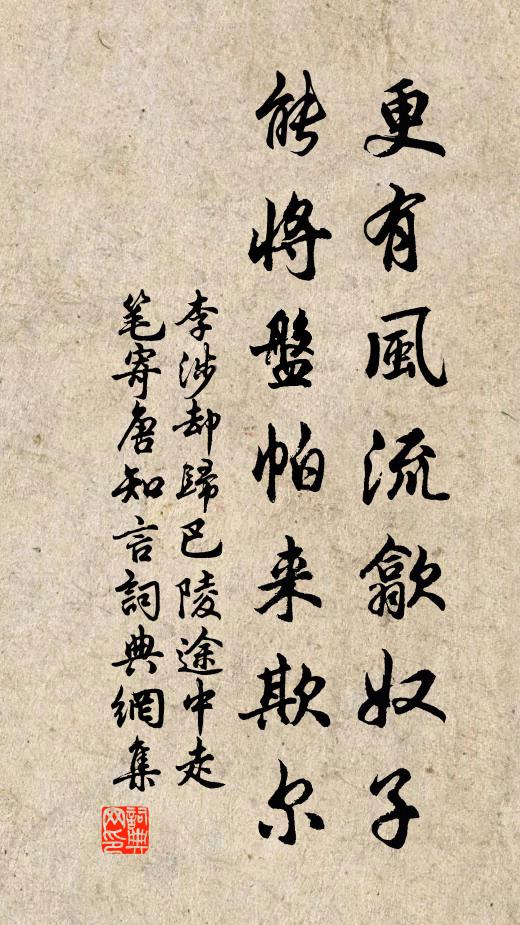 更有風流歙奴子
能將盤帕来欺尔
李涉却歸巴陵途中走
笔寄唐知言詞典網集
詞典网印